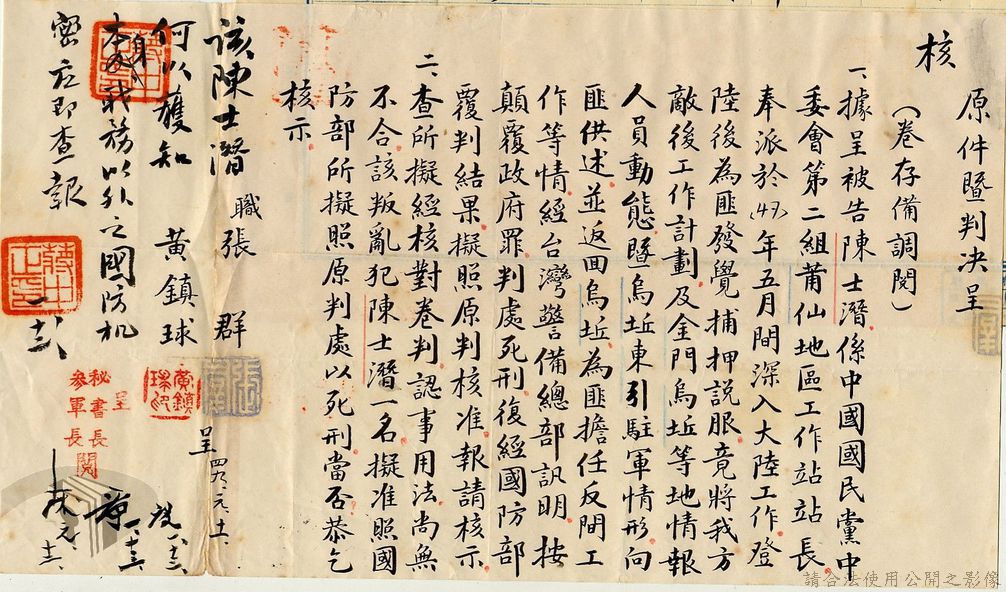 原件暨判決呈
核
(卷存備調閱)
一、據呈被告陳士潛係中國國民黨中
委會第二組莆仙地區工作站站長
奉派於(47)年五月間深入大陸工作登
陸後為匪發覺捕押說服竟將我方
敵後工作計劃及金門烏坵等地情報
人員動態暨烏坵東引駐軍情形向
匪供述並返回烏坵為匪擔任反間工
作等情經台灣警備總部訊明按
顛覆政府罪判處死刑復經國防部
覆判結果擬照原判核准報請核示
二、查所擬經核對卷判認事用法尚無
不合該叛亂犯陳士潛一名擬准照國
防部所擬照原判處以死刑當否恭乞
核示
職張群
黃鎮球
呈
四九、元、十一
黃鎮球印
該陳士潛
何以獲知
本身職務以外之國防机
密應即查報
蔣中正印
蔣中正印
呈
秘書長
參軍長
閱
請合法使用公開之影像